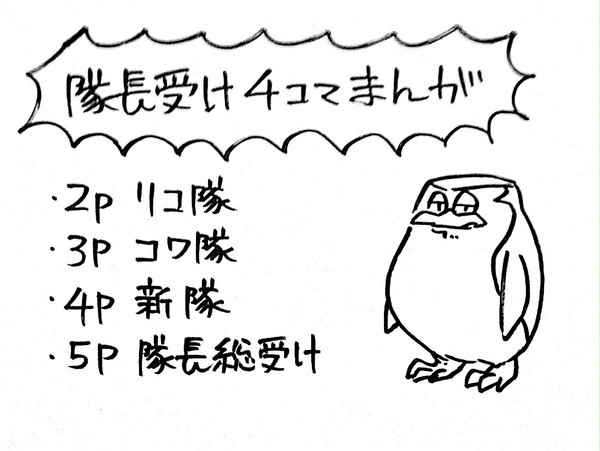 隊長受け4コマまんが
・2p リコ隊
・3p コワ隊
・4p 新隊
・5p 隊長総受け